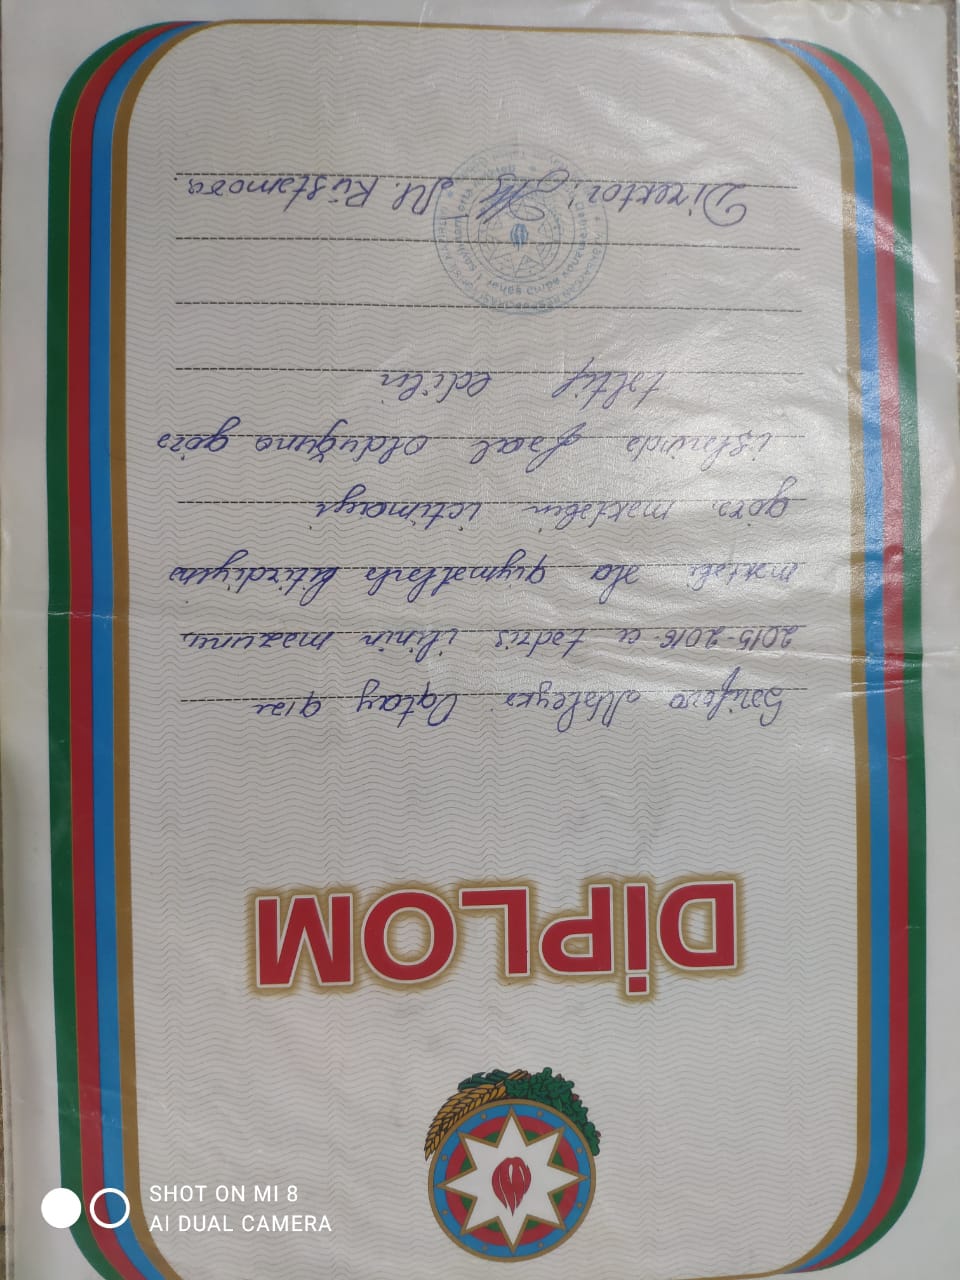 DİPLOM
Sərifova Alaleyxə Oqtay qızı
2015-2016 cı tədris ilinin məzunu
məktəbi əla qiymətlərlə bitirdiyinə
görə, məktəbin ictimayi
işlərində fəal olduğuna görə
təltif edilir
Direktor: M. Rüstəmova.
SHOT ON MI 8
AI DUAL CAMERA